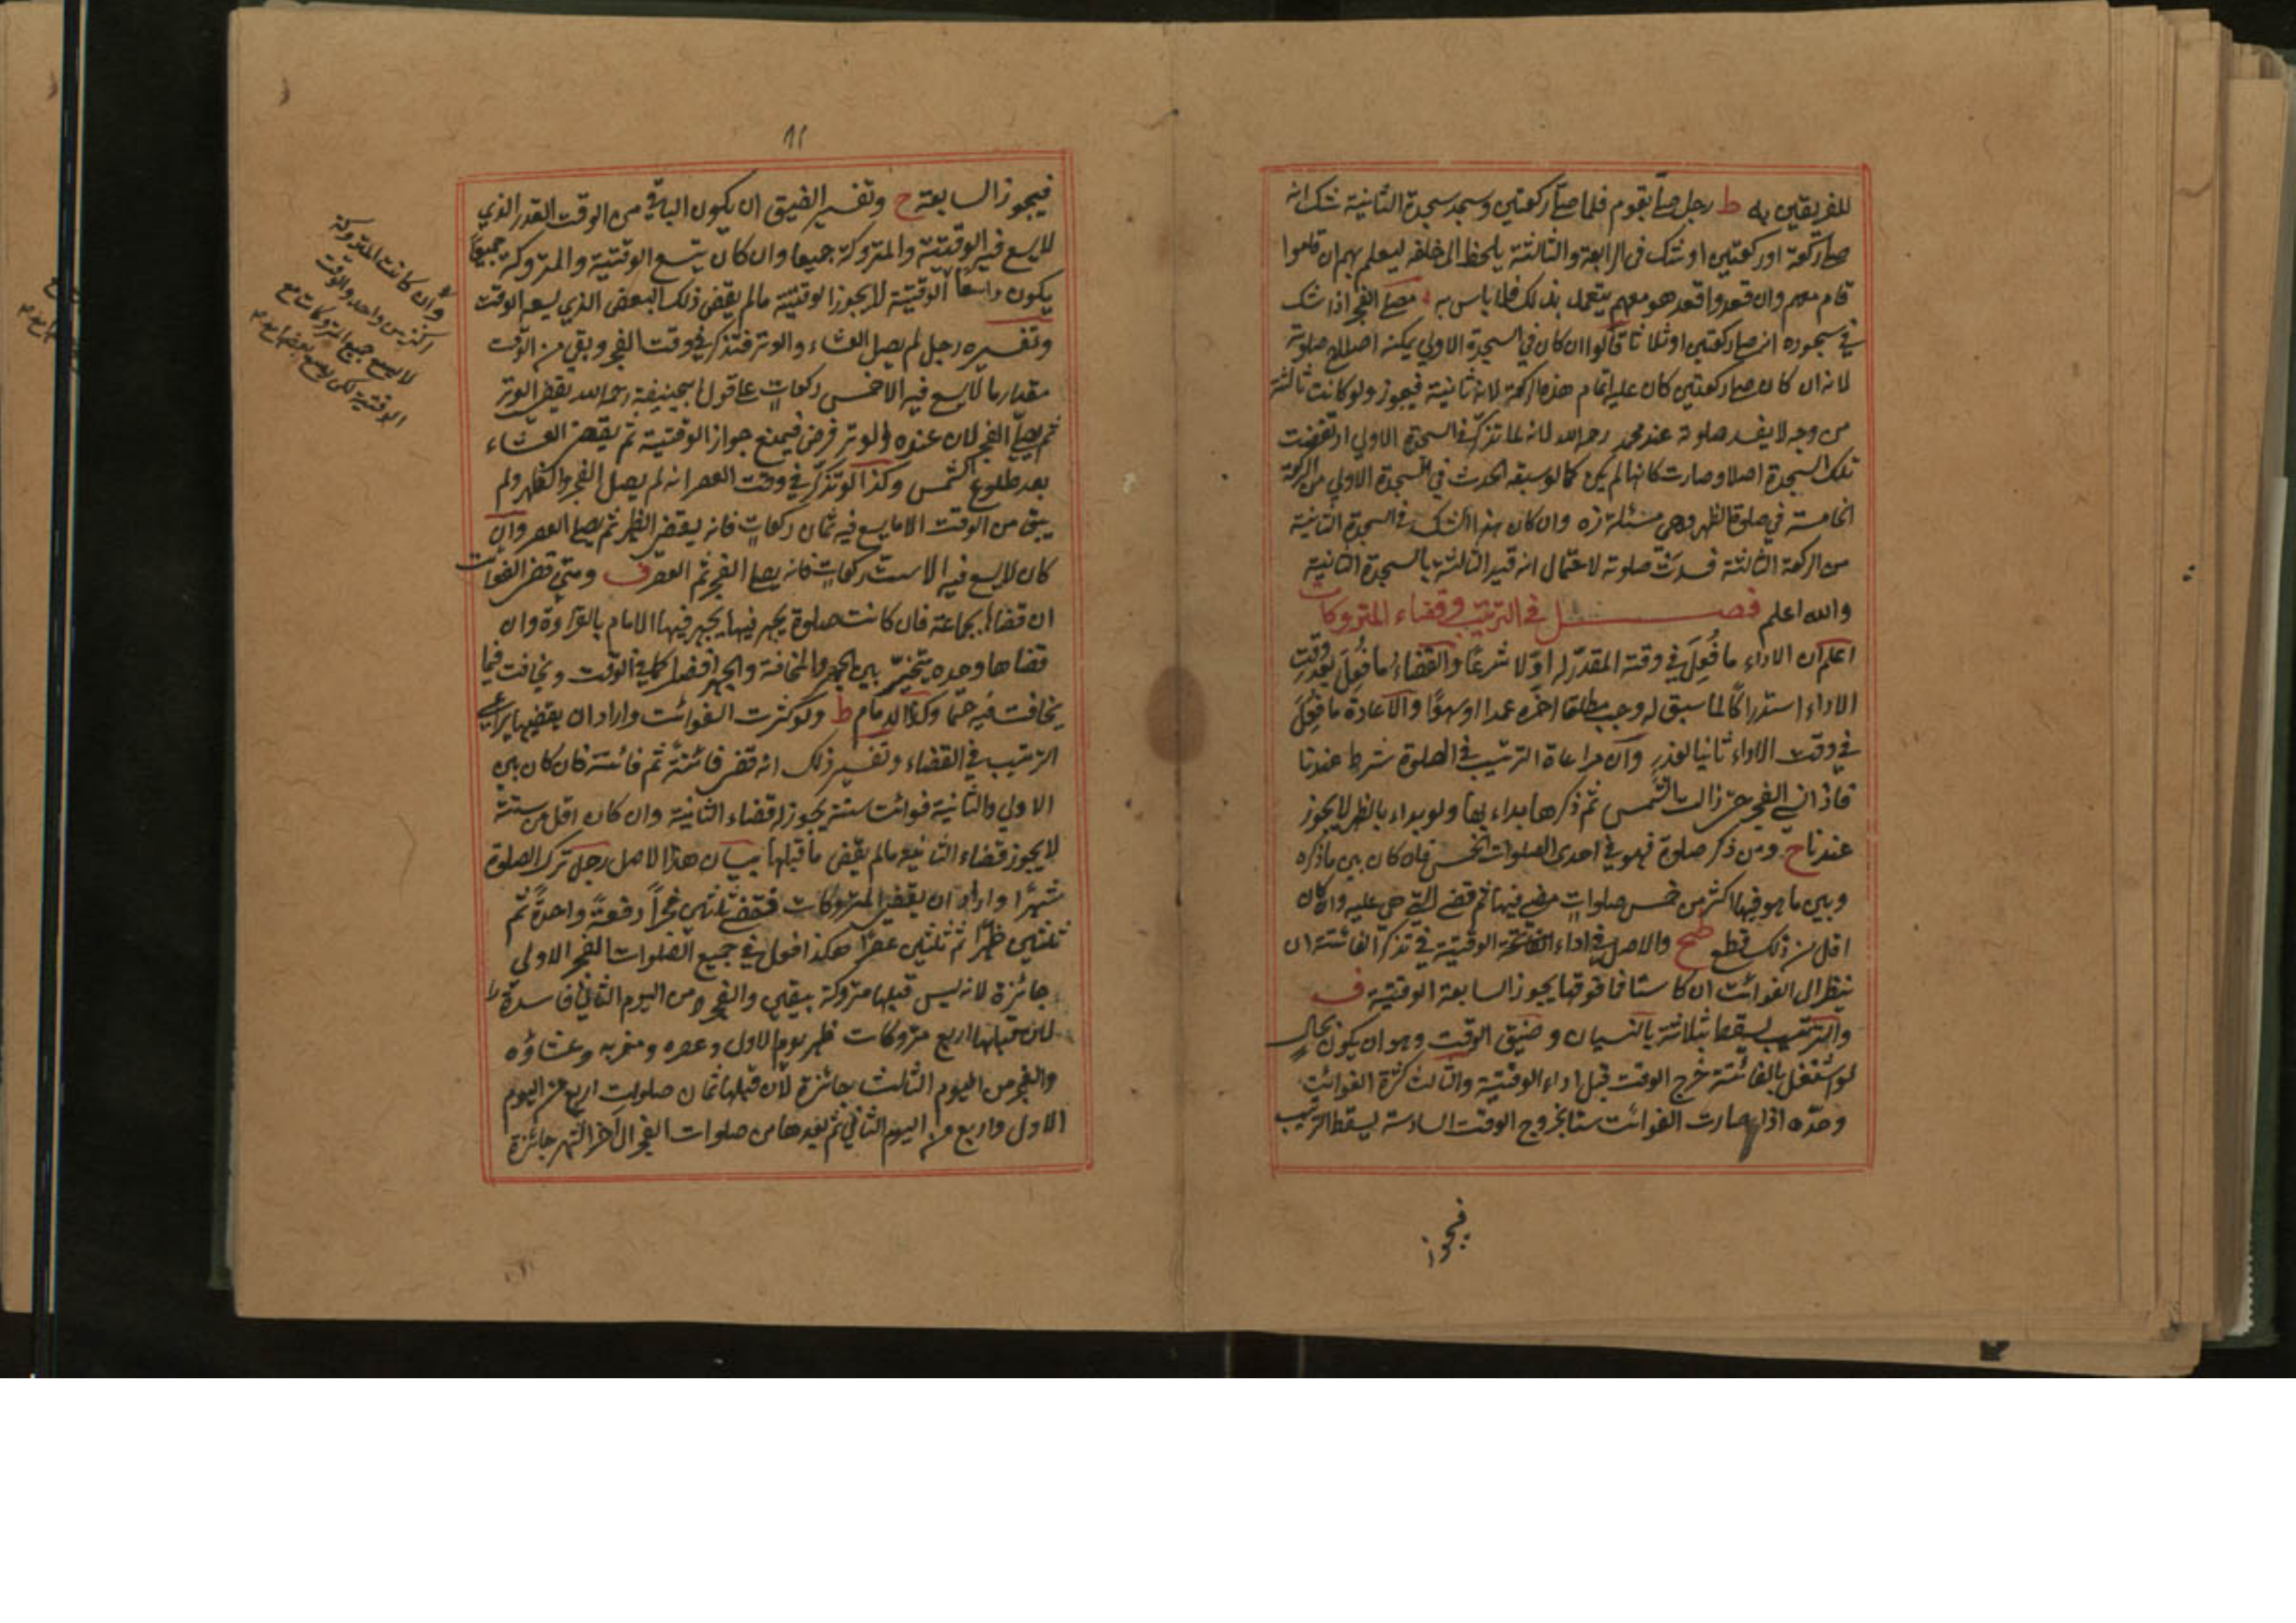 للفريقين به ط رجل صلى بقوم فلما صلى ركعتين وسجد سجدة الثانية شك انه
صلى ركعة او ركعتين او شك في الرابعة والثالثة يلحظ الى خلفه ليعلم بهم ان قاموا
قام معهم وان قعدوا قعد هو معهم يتعمل بذلك فلا باس به مصلي الفجر اذا شك
في سجوده انه صلى ركعتين او ثلاثا قالوا ان كان في السجدة الاولى يمكنه اصلاح صلوته
لانه ان كان صلى ركعتين كان عليه اتمام هذه الركعة لانه ثانية فيجوز ولو كانت ثالثة
من وجه لا يفسد صلوته عند محمد رحمه الله لانه لما تذكر في السجدة الاولى ارتفضت
تلك السجدة اصلا وصارت كانها لم يكن كما لو سبقه الحدث في السجدة الاولى من الركعة
الخامسة في صلوة الظهر وهي مسئلة زه وان كان هذا الشك في السجدة الثانية
من الركعة الثالثة فسدت صلوته لاحتمال انه قيد الثالثة بالسجدة الثانية
والله اعلم فصل في الترتيب وقضاء المتروكات
اعلم ان الاداء ما فُعِلَ في وقته المقدر له اوّلا شرعًا والقضاء ما فُعِلَ بعد وقت
الاداء استدراكًا لما سبق له وجب مطلقا اخره عمدا او سهوًا والاعادة ما فُعِلَ
في وقت الاداء ثانيا لعذرٍ وان مراعاة الترتيب في الصلوة شرط عندنا
فاذا نسي الفجر حتى زالت الشمس ثم ذكرها بداء بها ولو بداء بالظهر لا يجوز
عندنا ح ومن ذكر صلوة فهو في احدى الصلوات الخمس فان كان بين ما ذكره
وبين ما هو فيها اكثر من خمس صلوات مضى فيها ثم قضى التي هي عليه وان كان
اقل من ذلك قطع والاصل في اداء الوقتية في تذكر الفائتة ان
ينظر الى الفوائت ان كا ستا فما فوقها يجوز السابعة الوقتية ف
والترتيب يسقط بثلاثة بالنسيان وضيق الوقت وهو ان يكون بحالٍ
لو اشتغل بالفائتة خرج الوقت قبل اداء الوقتية والثالث كثرة الفوائت
وحدّه اذا صارت الفوائت ستا بخروج الوقت السادسة يسقط الترتيب
فيجوز
١١
فيجوز السابعة ح وتفسير الضيق ان يكون الباقي من الوقت القدر الذي
لا يسع فيه الوقتية والمتروكة جميعا وان كان يتسع الوقتية والمتروكة جميعًا
يكون واسعا الوقتية لا يجوز الوقتية ما لم يقض ذلك البعض الذي يسعه الوقت
وتفسيره رجل لم يصل العشاء والوتر فتذكر في وقت الفجر وبقي من الوقت
مقدار ما لا يسع فيه الا خمس ركعات على قول ابي حنيفة رحمه الله يقضي الوتر
ثم يصلي الفجر لان عنده الوتر فرض فيمنع جواز الوقتية ثم يقضي العشاء
بعد طلوع الشمس وكذا لو تذكر في وقت العصر انه لم يصل الفجر والظهر ولم
يبق من الوقت الا ما يسع فيه ثمان ركعات فانه يقضي الظهر ثم يصلي العصر وان
كان لا يسع فيه الا ست ركعات فانه يصلي الفجر ثم العصر ف ومتى قضى الفوائت
ان قضاها بجماعة فان كانت صلوة يجهر فيها يجهر فيها الامام بالقراءة وان
قضاها وحده يتخير بين الجهر والمخافتة والجهر افضل كما في الوقت ويخافت فيما
يخافت فيه حتما وكذا الامام ط ولو كثرت الفوائت واراد ان يقضيها يراعي
الترتيب في القضاء وتفسير ذلك انه قضى فائتة ثم فائتة فان كان بين
الاولى والثانية فوائت ستة يجوز له قضاء الثانية وان كان اقل من ستة
لا يجوز قضاء الثانية ما لم يقض ما قبلها بيان هذا الاصل رجل ترك الصلوة
شهرًا واراد ان يقضي المتروكات فقضى ثلثين فجرًا دفعةً واحدةً ثم
ثلثين ظهرًا ثم ثلثين عصرًا هكذا فعل في جميع الصلوات الفجر الاولى
جائزة لانه ليس قبلها متروكة بيقين والفجر من اليوم الثاني فاسدة
لان قبلها اربع متروكات ظهر يوم الاول وعصره ومغربه وعشاؤه
والفجر من اليوم الثالث جائزة لان قبلها ثمان صلوات اربع من اليوم
الاول واربع من اليوم الثاني ثم بعدها من صلوات الفجر الى اخر الشهر جائزة
وان كانت المتروكة
اكثر من واحد والوقت
لا يسع جميع المتروكات مع
الوقتية لكن يسع بعضها